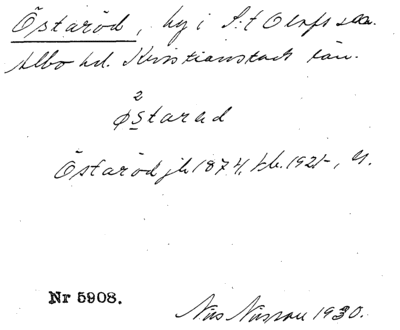 Östaröd, by i S:t Olofs sn.
Albo hd. Kristianstads län.
2
østarad
Östaröd jb 1874, kb. 1921-, 
Nr 5908.
Nils Nilsson 1930.